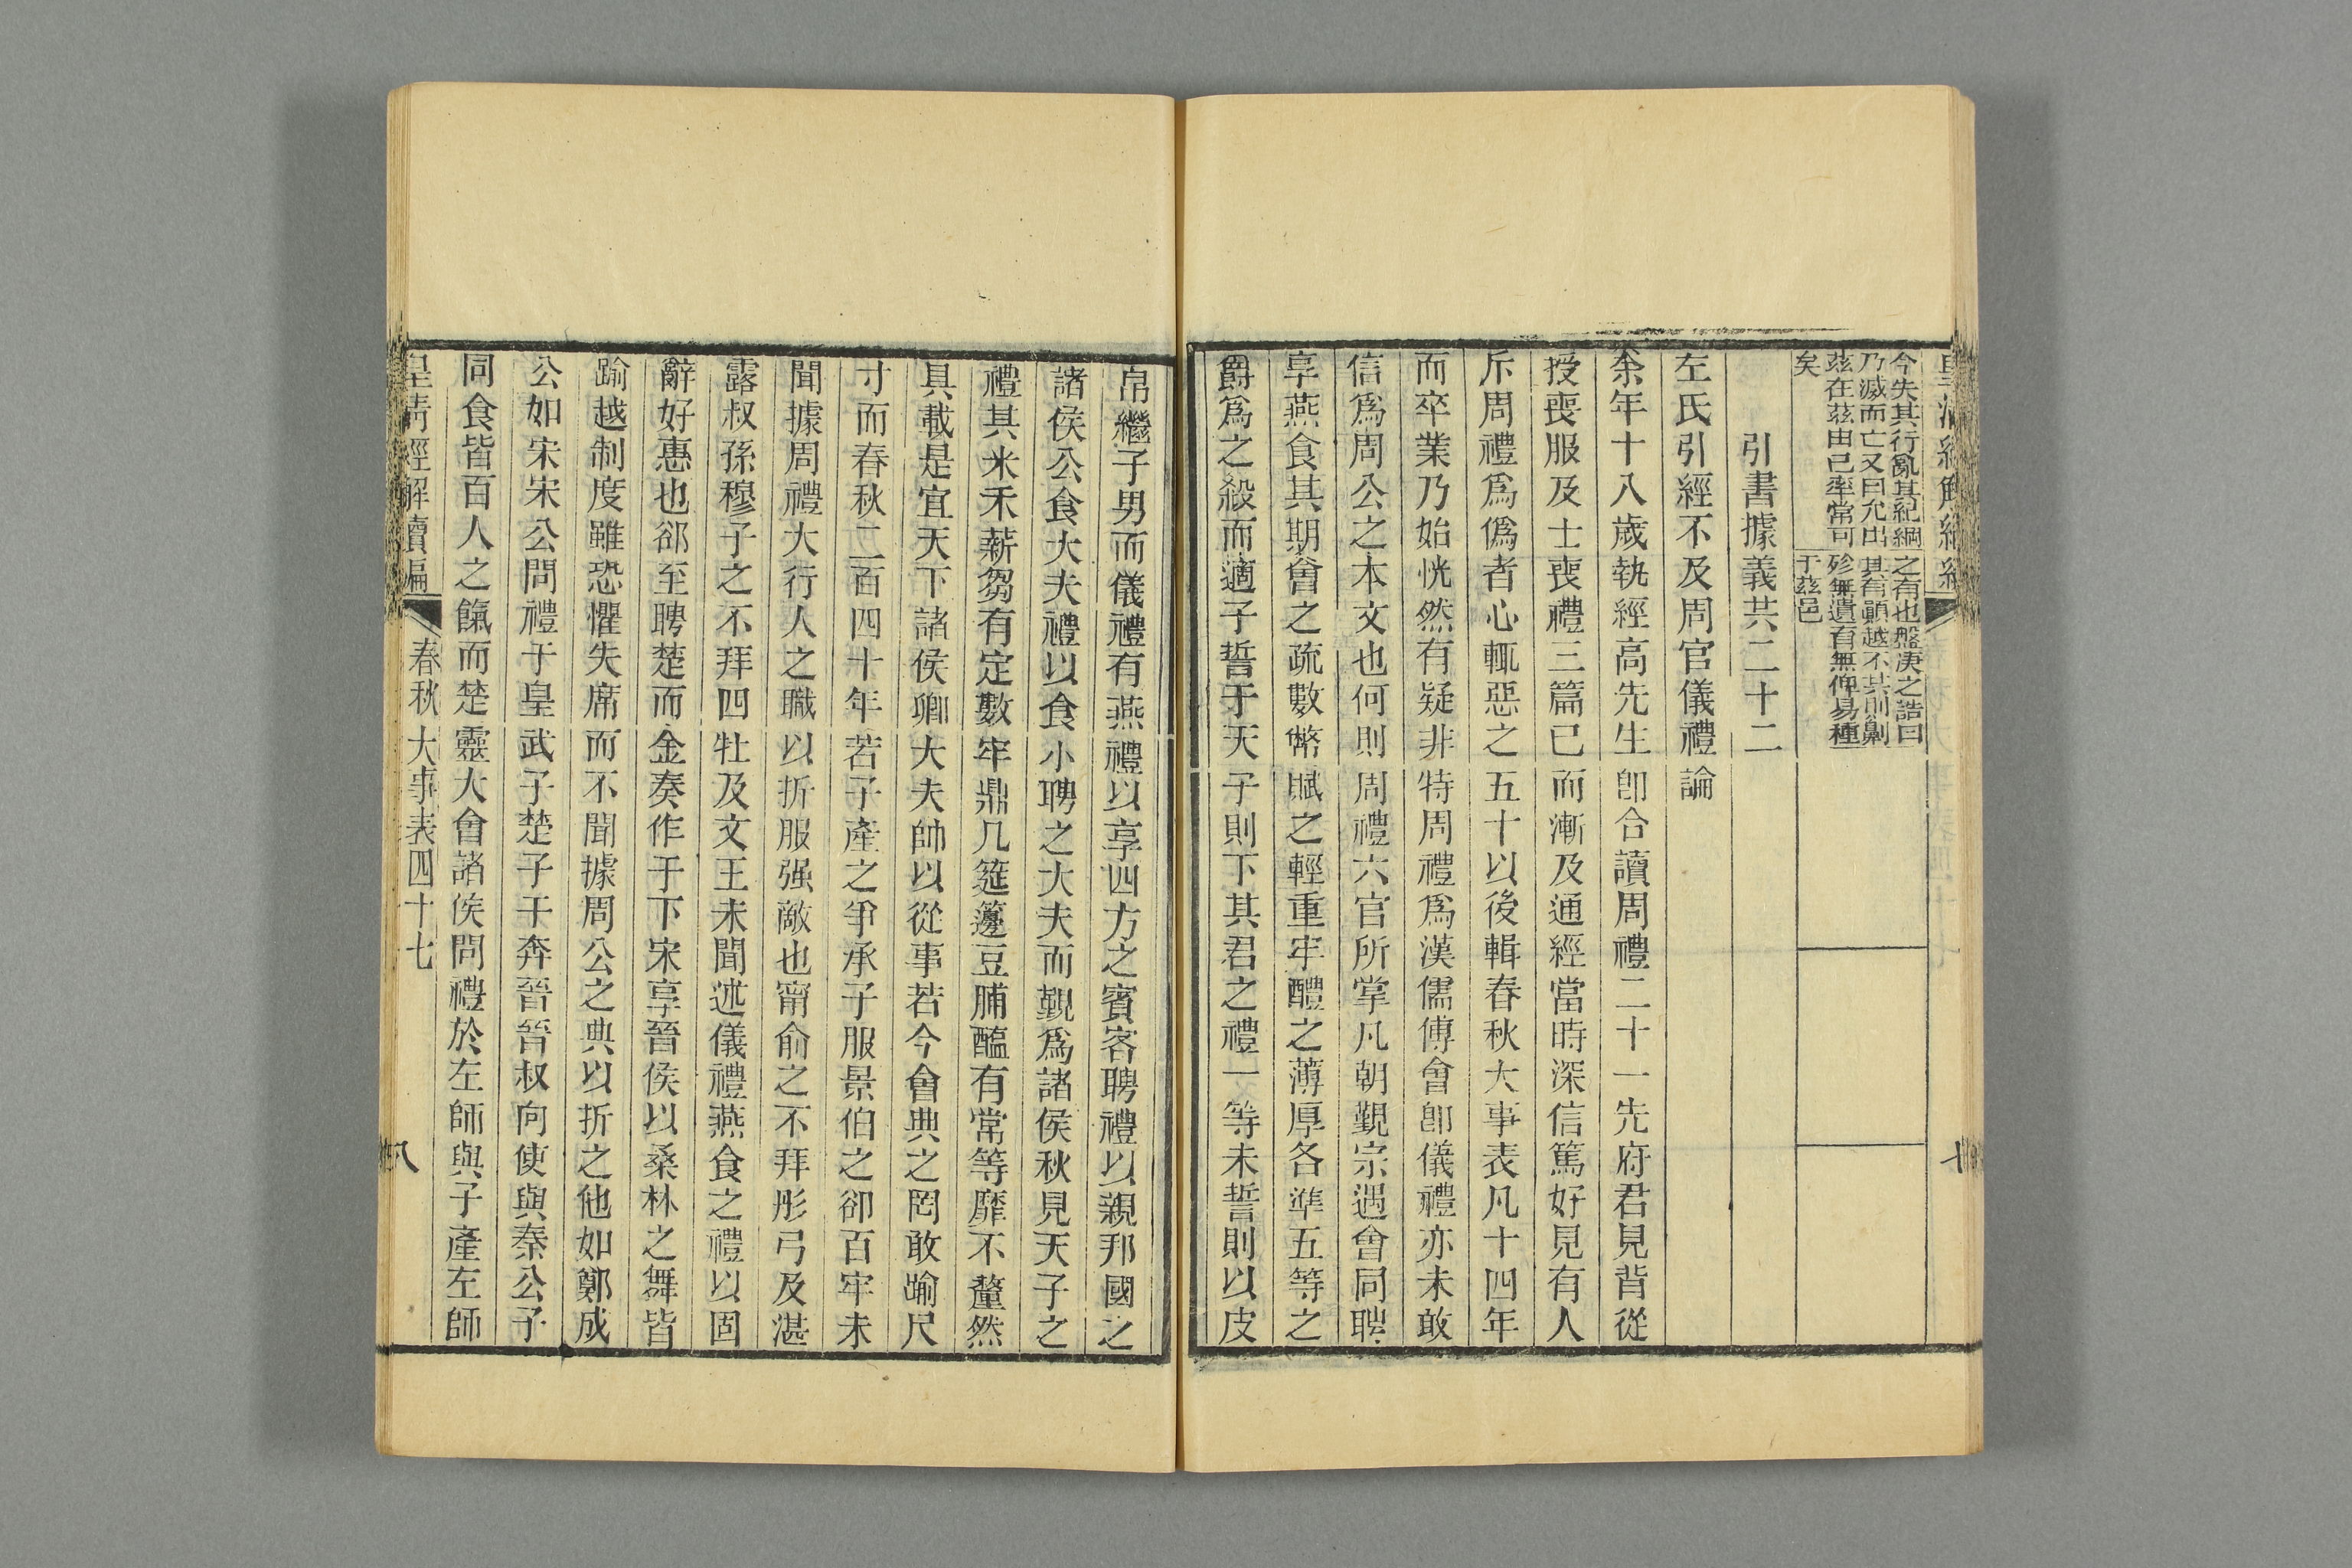 今失其行亂其紀綱
乃滅而亡又曰允出
茲在茲由己率常可
矣
之有也盤庚之誥曰
其有顚越不共則劓
殄無遺育無俾易種
于茲邑
引書據義共二十二
左氏引經不及周官儀禮論
余年十八歲執經高先生卽合讀周禮二十一先府君見背從
授喪服及士喪禮三篇已而漸及通經當時深信篤好見有人
斥周禮爲僞者心輒惡之五十以後輯春秋大事表凡十四年
而卒業乃始恍然有疑非特周禮爲漢儒傅會卽儀禮亦未敢
信爲周公之本文也何則周禮六官所掌凡朝覲宗遇會同聘
享燕食其期會之疏數幣賦之輕重牢醴之薄厚各準五等之
爵爲之殺而適子誓于天子則下其君之禮一等未誓則以皮
帛繼子男而儀禮有燕禮以享四方之賓客聘禮以親邦國之
諸侯公食大夫禮以食小聘之大夫而覲爲諸侯秋見天子之
禮其米禾薪芻有定數牢鼎几筵籩豆脯醢有常等靡不釐然
具載是宜天下諸侯卿大夫帥以從事若今會典之罔敢踰尺
寸而春秋二百四十年若子產之爭承子服景伯之卻百牢未
聞據周禮大行人之職以折服强敵也甯俞之不拜彤弓及湛
露叔孫穆子之不拜四牡及文王未聞述儀禮燕食之禮以固
辭好惠也郤至聘楚而金奏作于下宋享晉侯以桑林之舞皆
踰越制度雖恐懼失席而不聞據周公之典以折之他如鄭成
公如宋宋公問禮于皇武子楚子干奔晉晉叔向使與秦公子
同食皆百人之餼而楚靈大會諸侯問禮於左師與子產左師
皇清經解續編
春秋大事表四十七
八